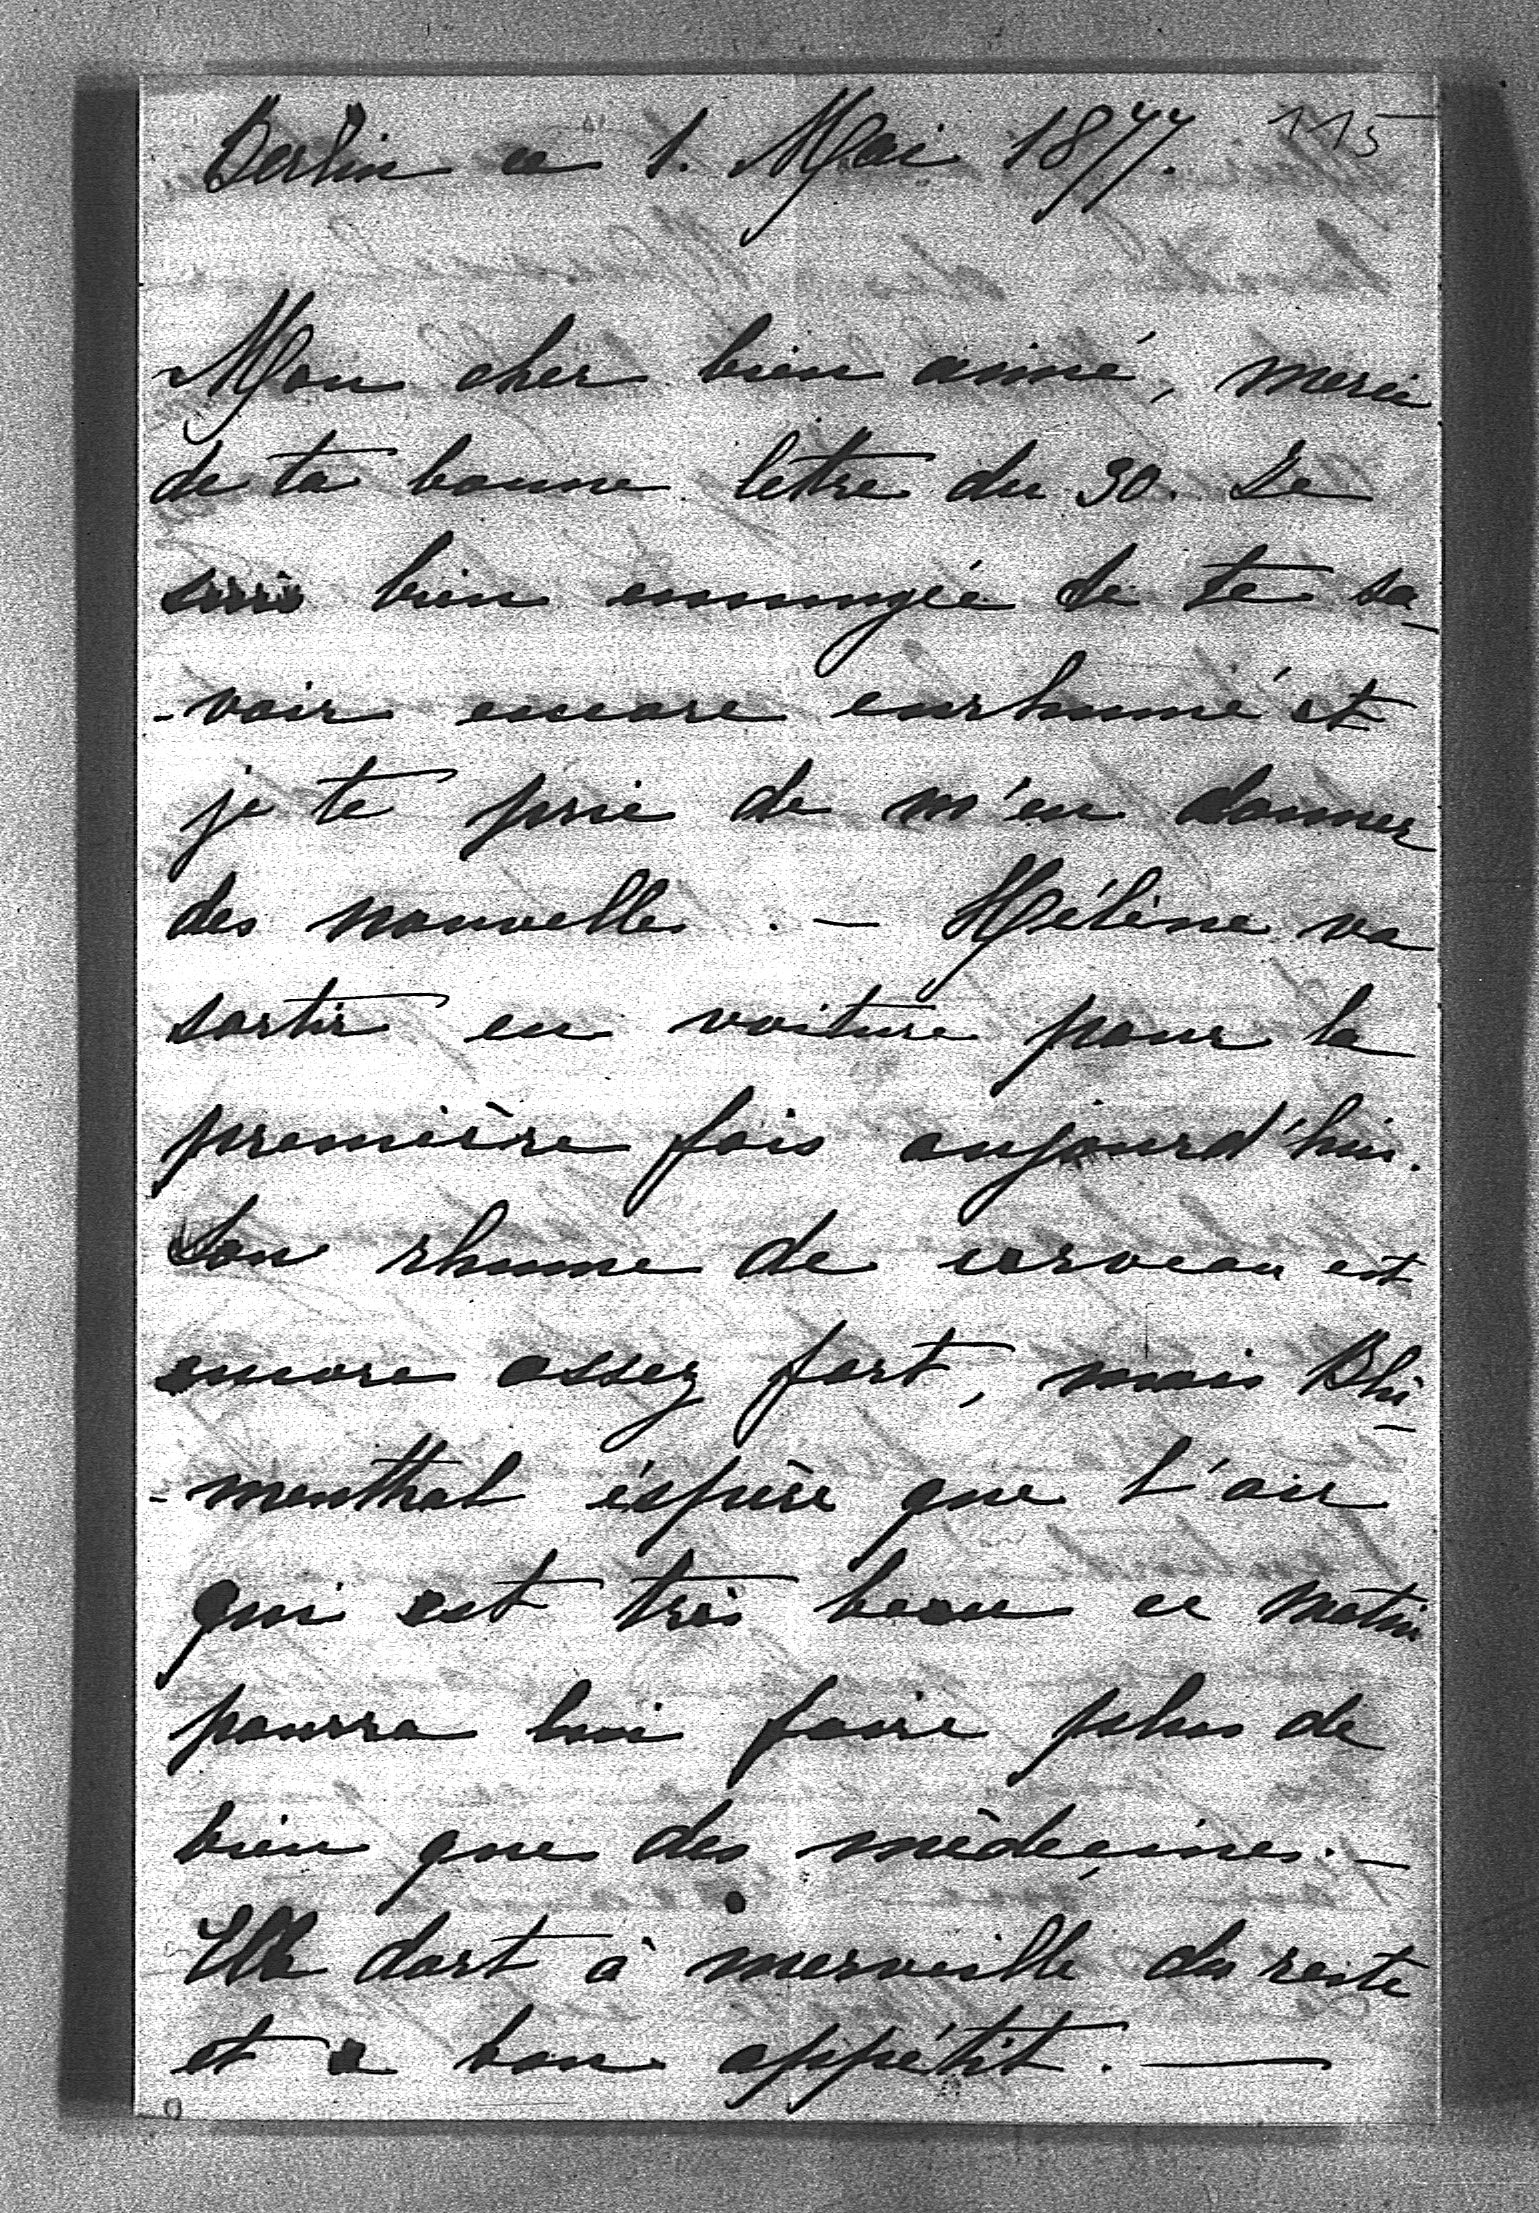 115
Berlin ce 1. Mai 1877.
Mon cher bien aimé, merci
de ta bonne lettre du 30. Je
suis bien ennuyée de te sa-
-voir encore enrhumé et
je te prie de m'en donner
des nouvelles. — Hélène va
sortir en voiture pour la
première fois aujourd'hui.
Son rhume de cerveau est
encore assez fort, mais Blu-
-menthal éspère que l'air
qui est très beau ce matin
pourra lui faire plus de
bien que des médecines. —
Elle dort à merveille du reste
et a bon appétit. —